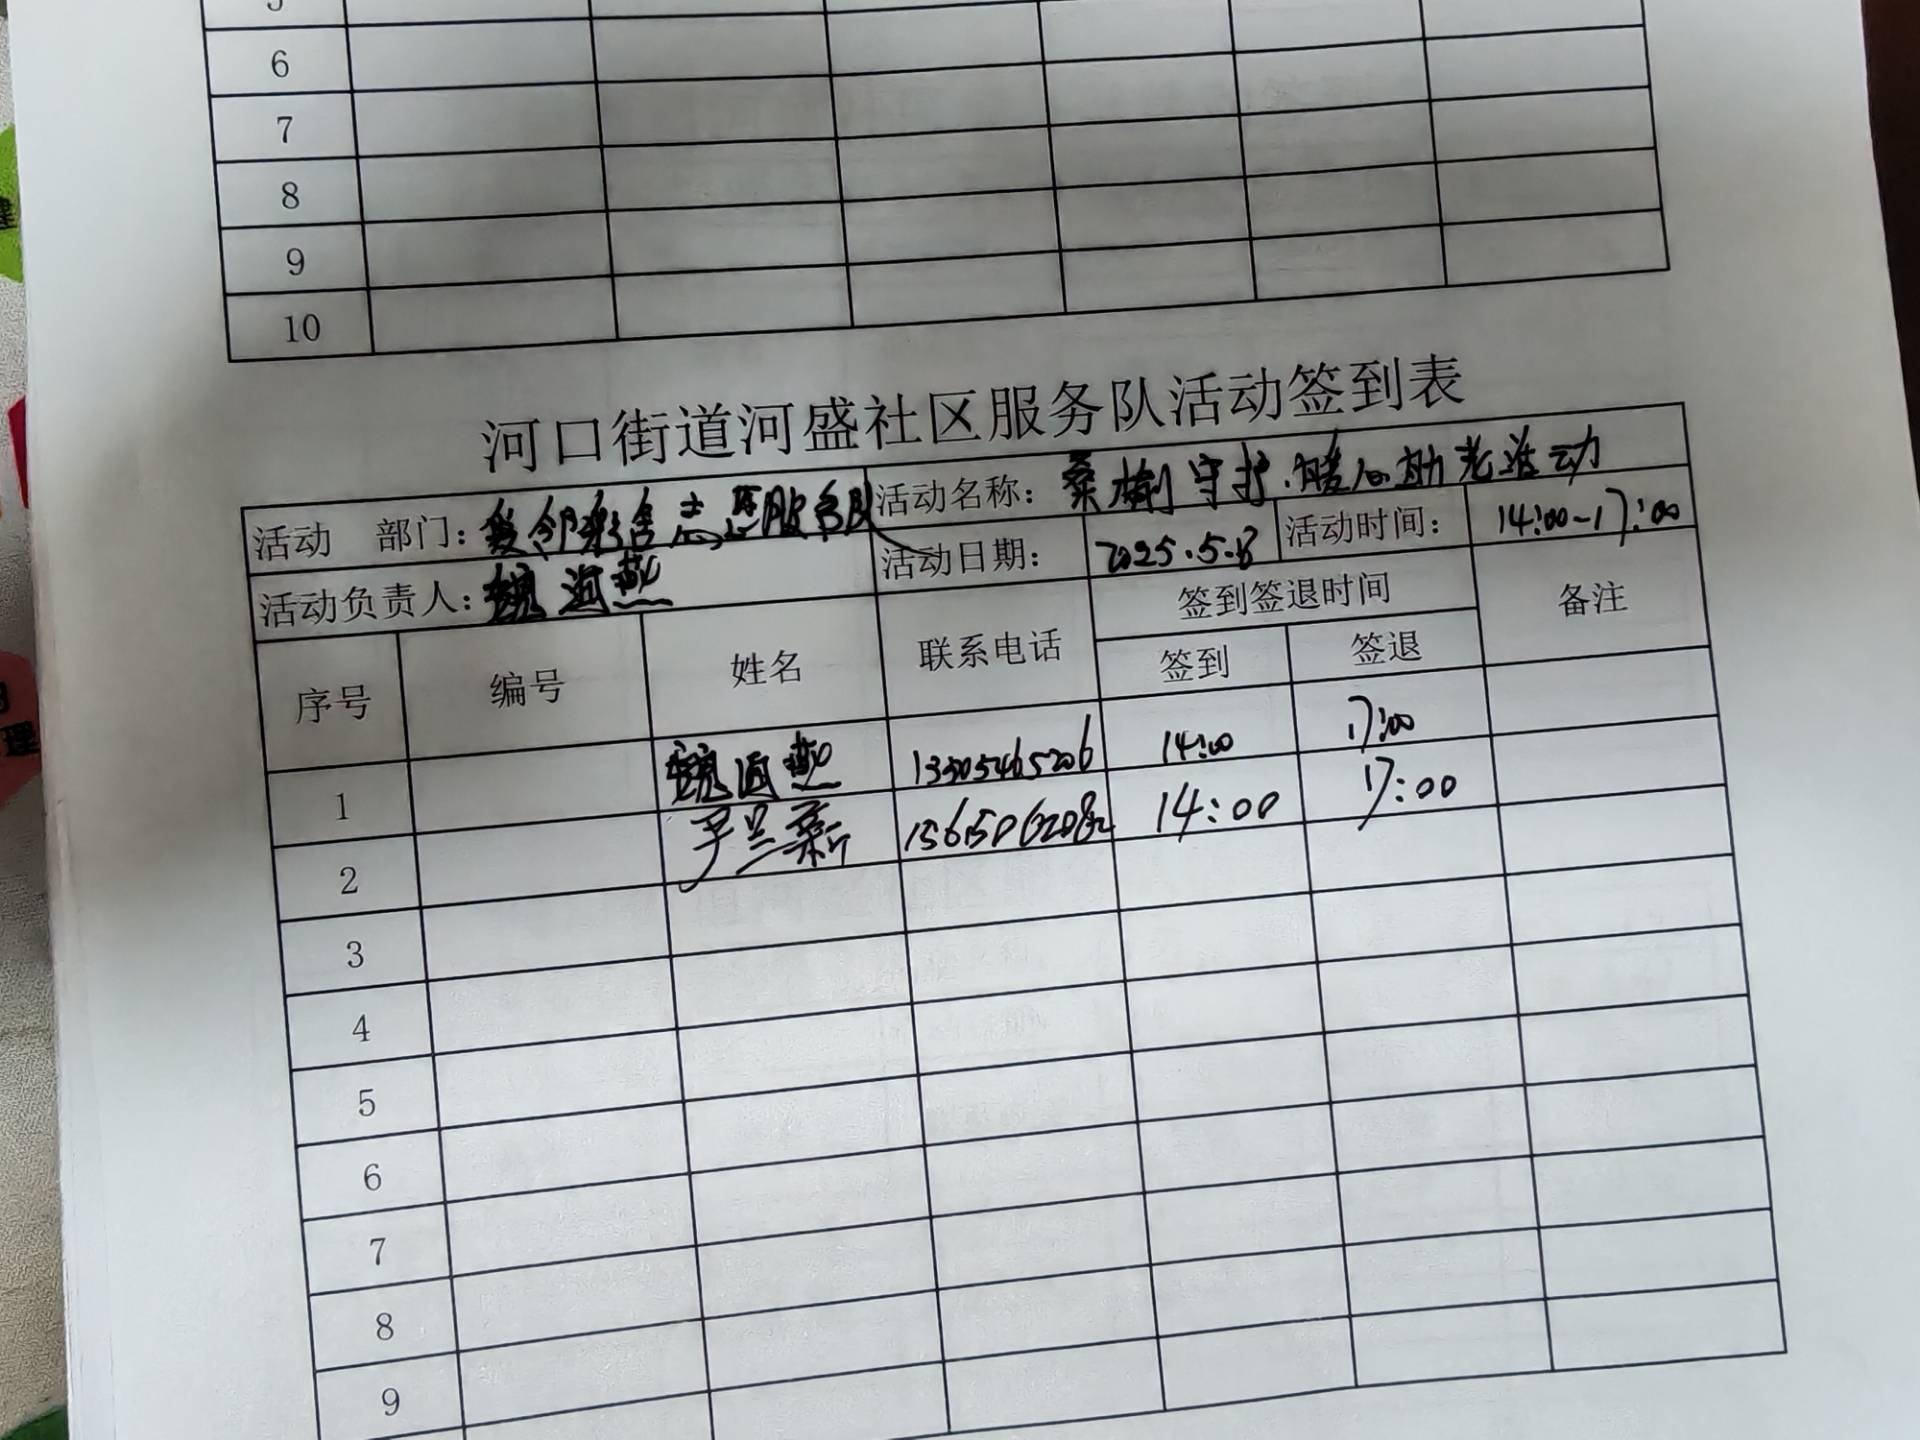 6
7
8
9
10
河口街道河盛社区服务队活动签到表
活动 部门: 服务队 活动名称: 桑榆守护.暖心助老活动
活动负责人: 魏海燕 活动日期: 2025.5.8 活动时间: 14:00-17:00
序号 编号 姓名 联系电话 签到签退时间 备注
签到 签退
1 魏海燕 13305465206 14:00 17:00
2 兰新 14:00 17:00
3
4
5
6
7
8
9